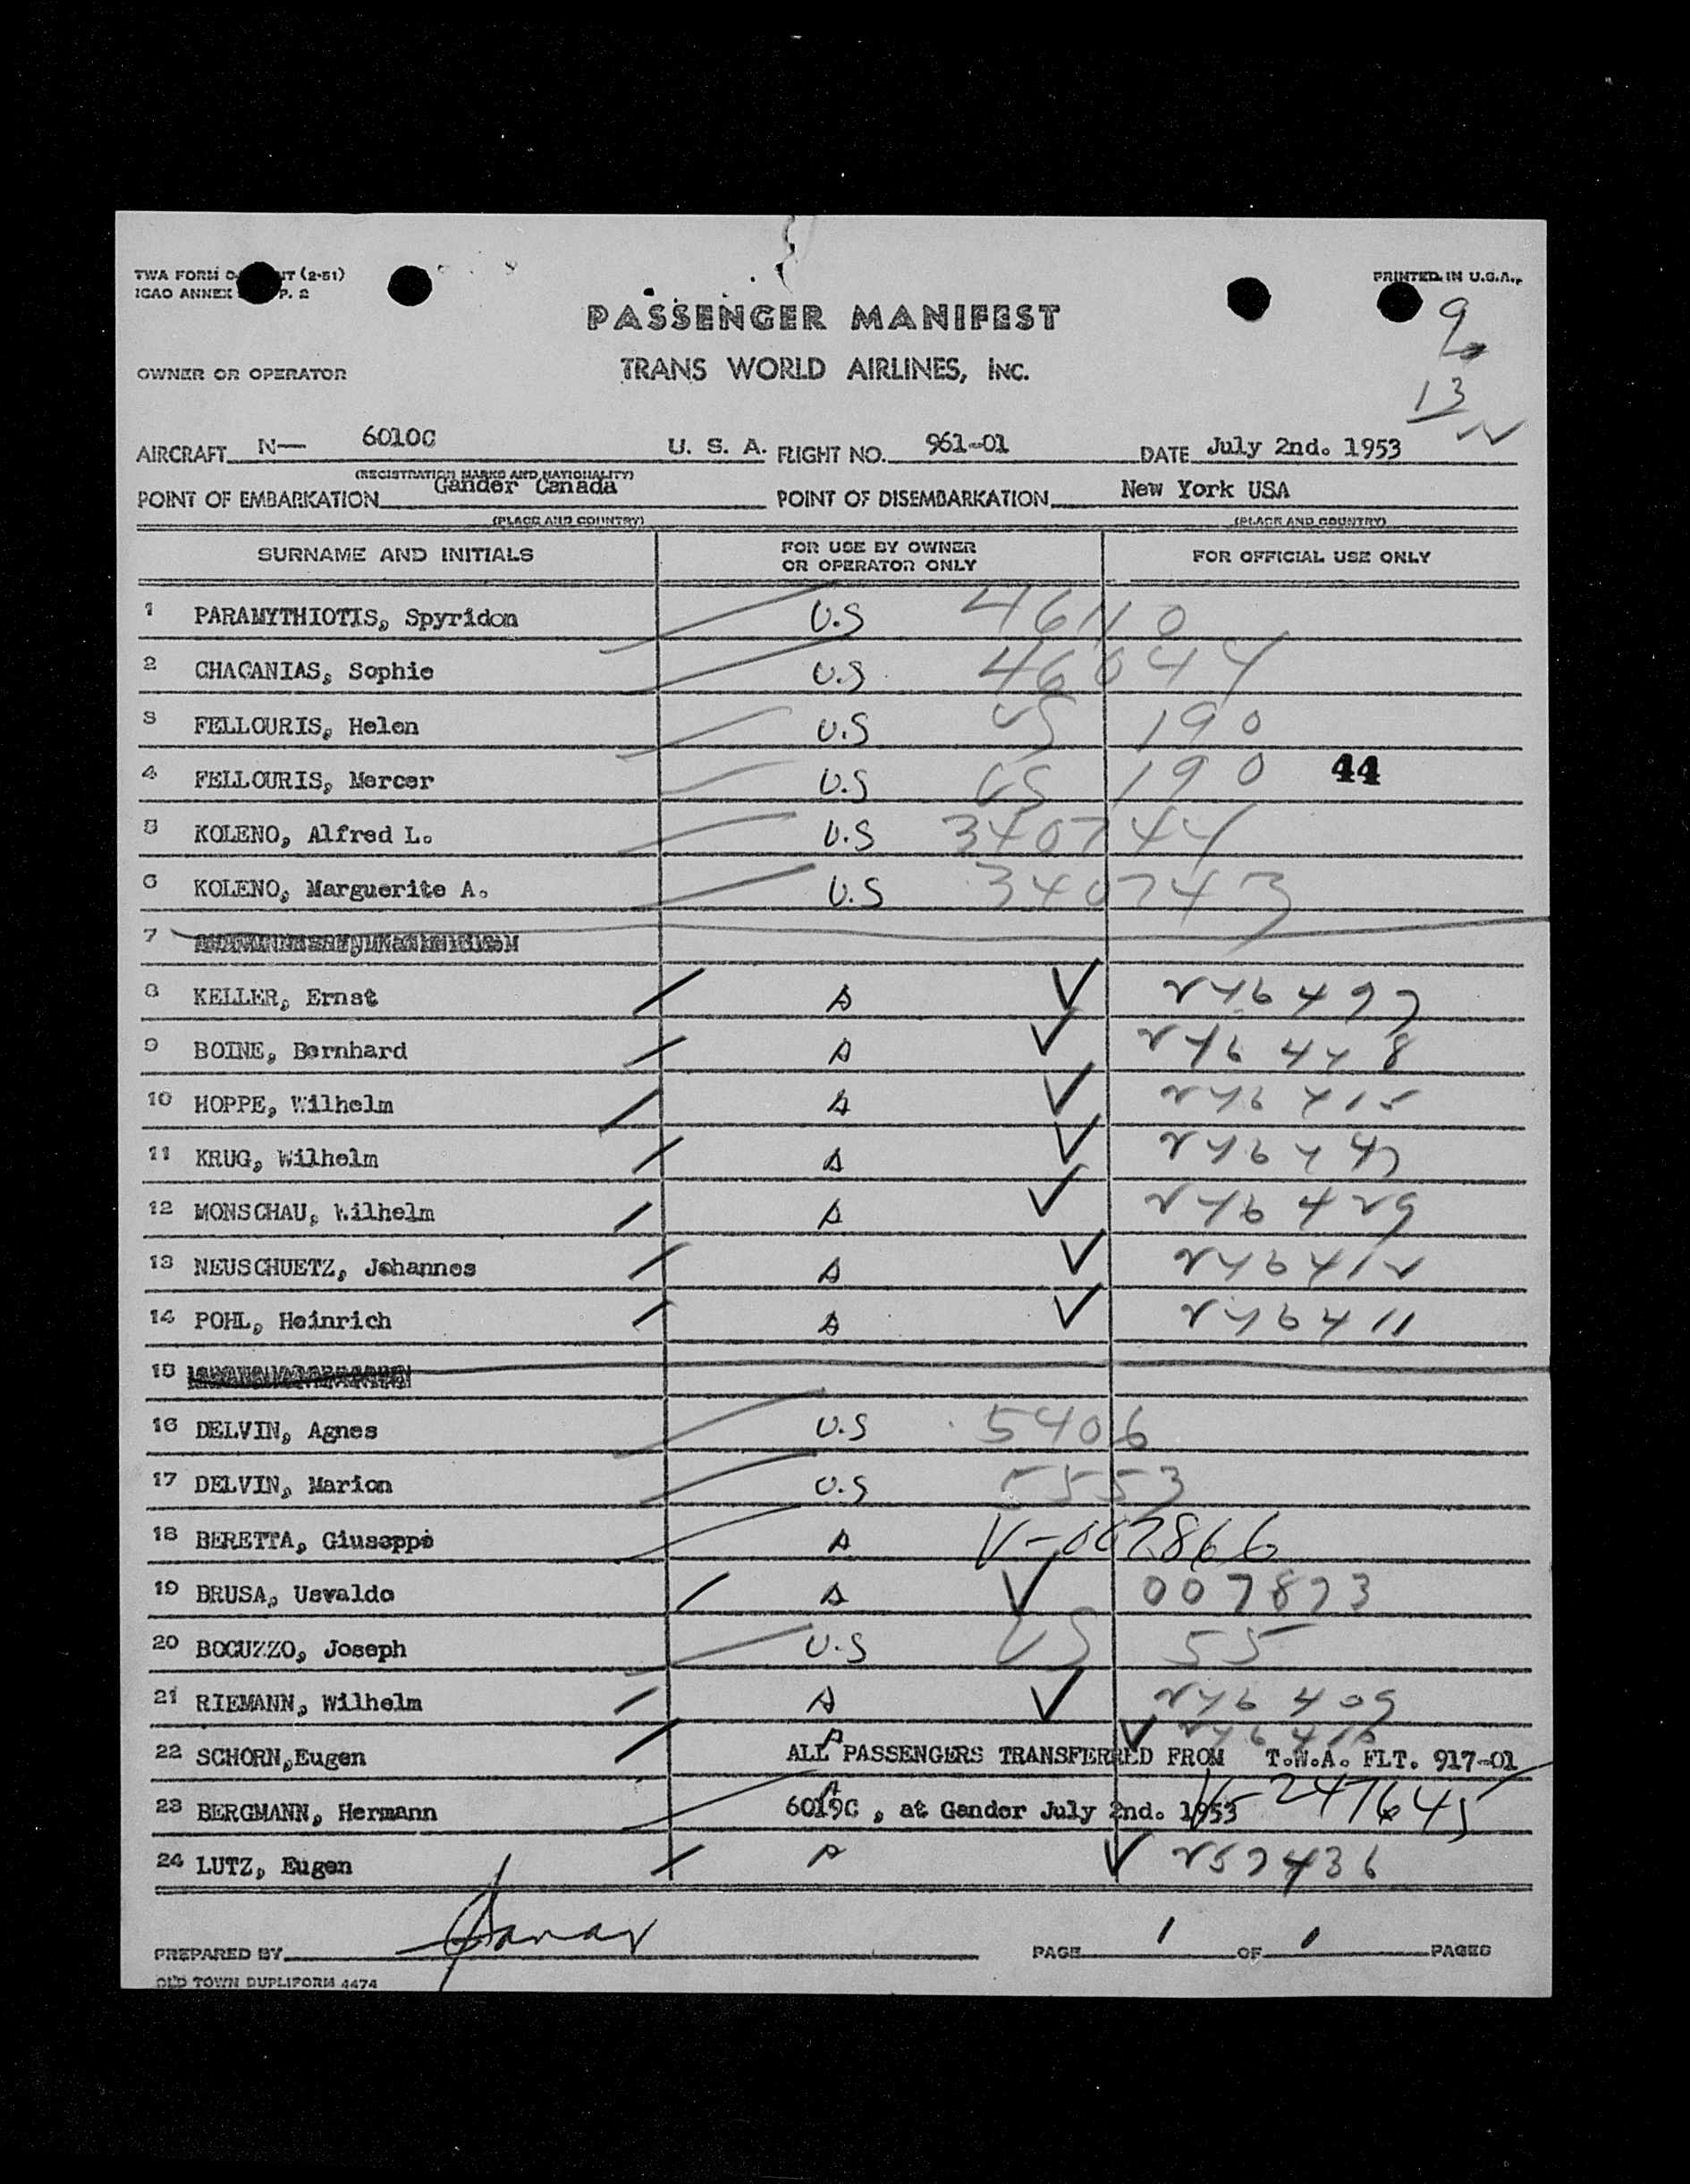 TWA FORM (2-51)
PRINTED IN U.S.A.
ICAO ANNEX P. 2
PASSENGER MANIFEST
9
OWNER OR OPERATOR
TRANS WORLD AIRLINES, INC.
13
AIRCRAFT N— 6010C U. S. A. FLIGHT NO. 961-01 DATE July 2nd. 1953
(REGISTRATION MARKS AND NATIONALITY)
POINT OF EMBARKATION Gander Canada POINT OF DISEMBARKATION New York USA
(PLACE AND COUNTRY) (PLACE AND COUNTRY)
SURNAME AND INITIALS FOR USE BY OWNER OR OPERATOR ONLY FOR OFFICIAL USE ONLY
1 PARAMYTHIOTIS, Spyridon U.S 46110
2 CHACANIAS, Sophie U.S 46044
3 FELLOURIS, Helen U.S US 190
4 FELLOURIS, Mercer U.S US 190 44
5 KOLENO, Alfred L. U.S 340744
6 KOLENO, Marguerite A. U.S 340743
7
8 KELLER, Ernst A ✓ 246497
9 BOINE, Bernhard A ✓ 246448
10 HOPPE, Wilhelm A ✓ 246415
11 KRUG, Wilhelm A ✓
12 MONSCHAU, Wilhelm A ✓ 246429
13 NEUSCHUETZ, Johannes A ✓ 246412
14 POHL, Heinrich A ✓ 246411
15
16 DELVIN, Agnes U.S 5406
17 DELVIN, Marion U.S 5553
18 BERETTA, Giuseppe A V-007866
19 BRUSA, Usvaldo A ✓ 007873
20 BOCUZZO, Joseph U.S US 55
21 RIEMANN, Wilhelm A ✓ 246409
22 SCHORN, Eugen A ✓
ALL PASSENGERS TRANSFERRED FROM T.W.A. FLT. 917-01
23 BERGMANN, Hermann A V-247645
6019C , at Gander July 2nd. 1953
24 LUTZ, Eugen A ✓ 257436
PREPARED BY PAGE 1 OF 1 PAGES
OLD TOWN DUPLIFORM 4474